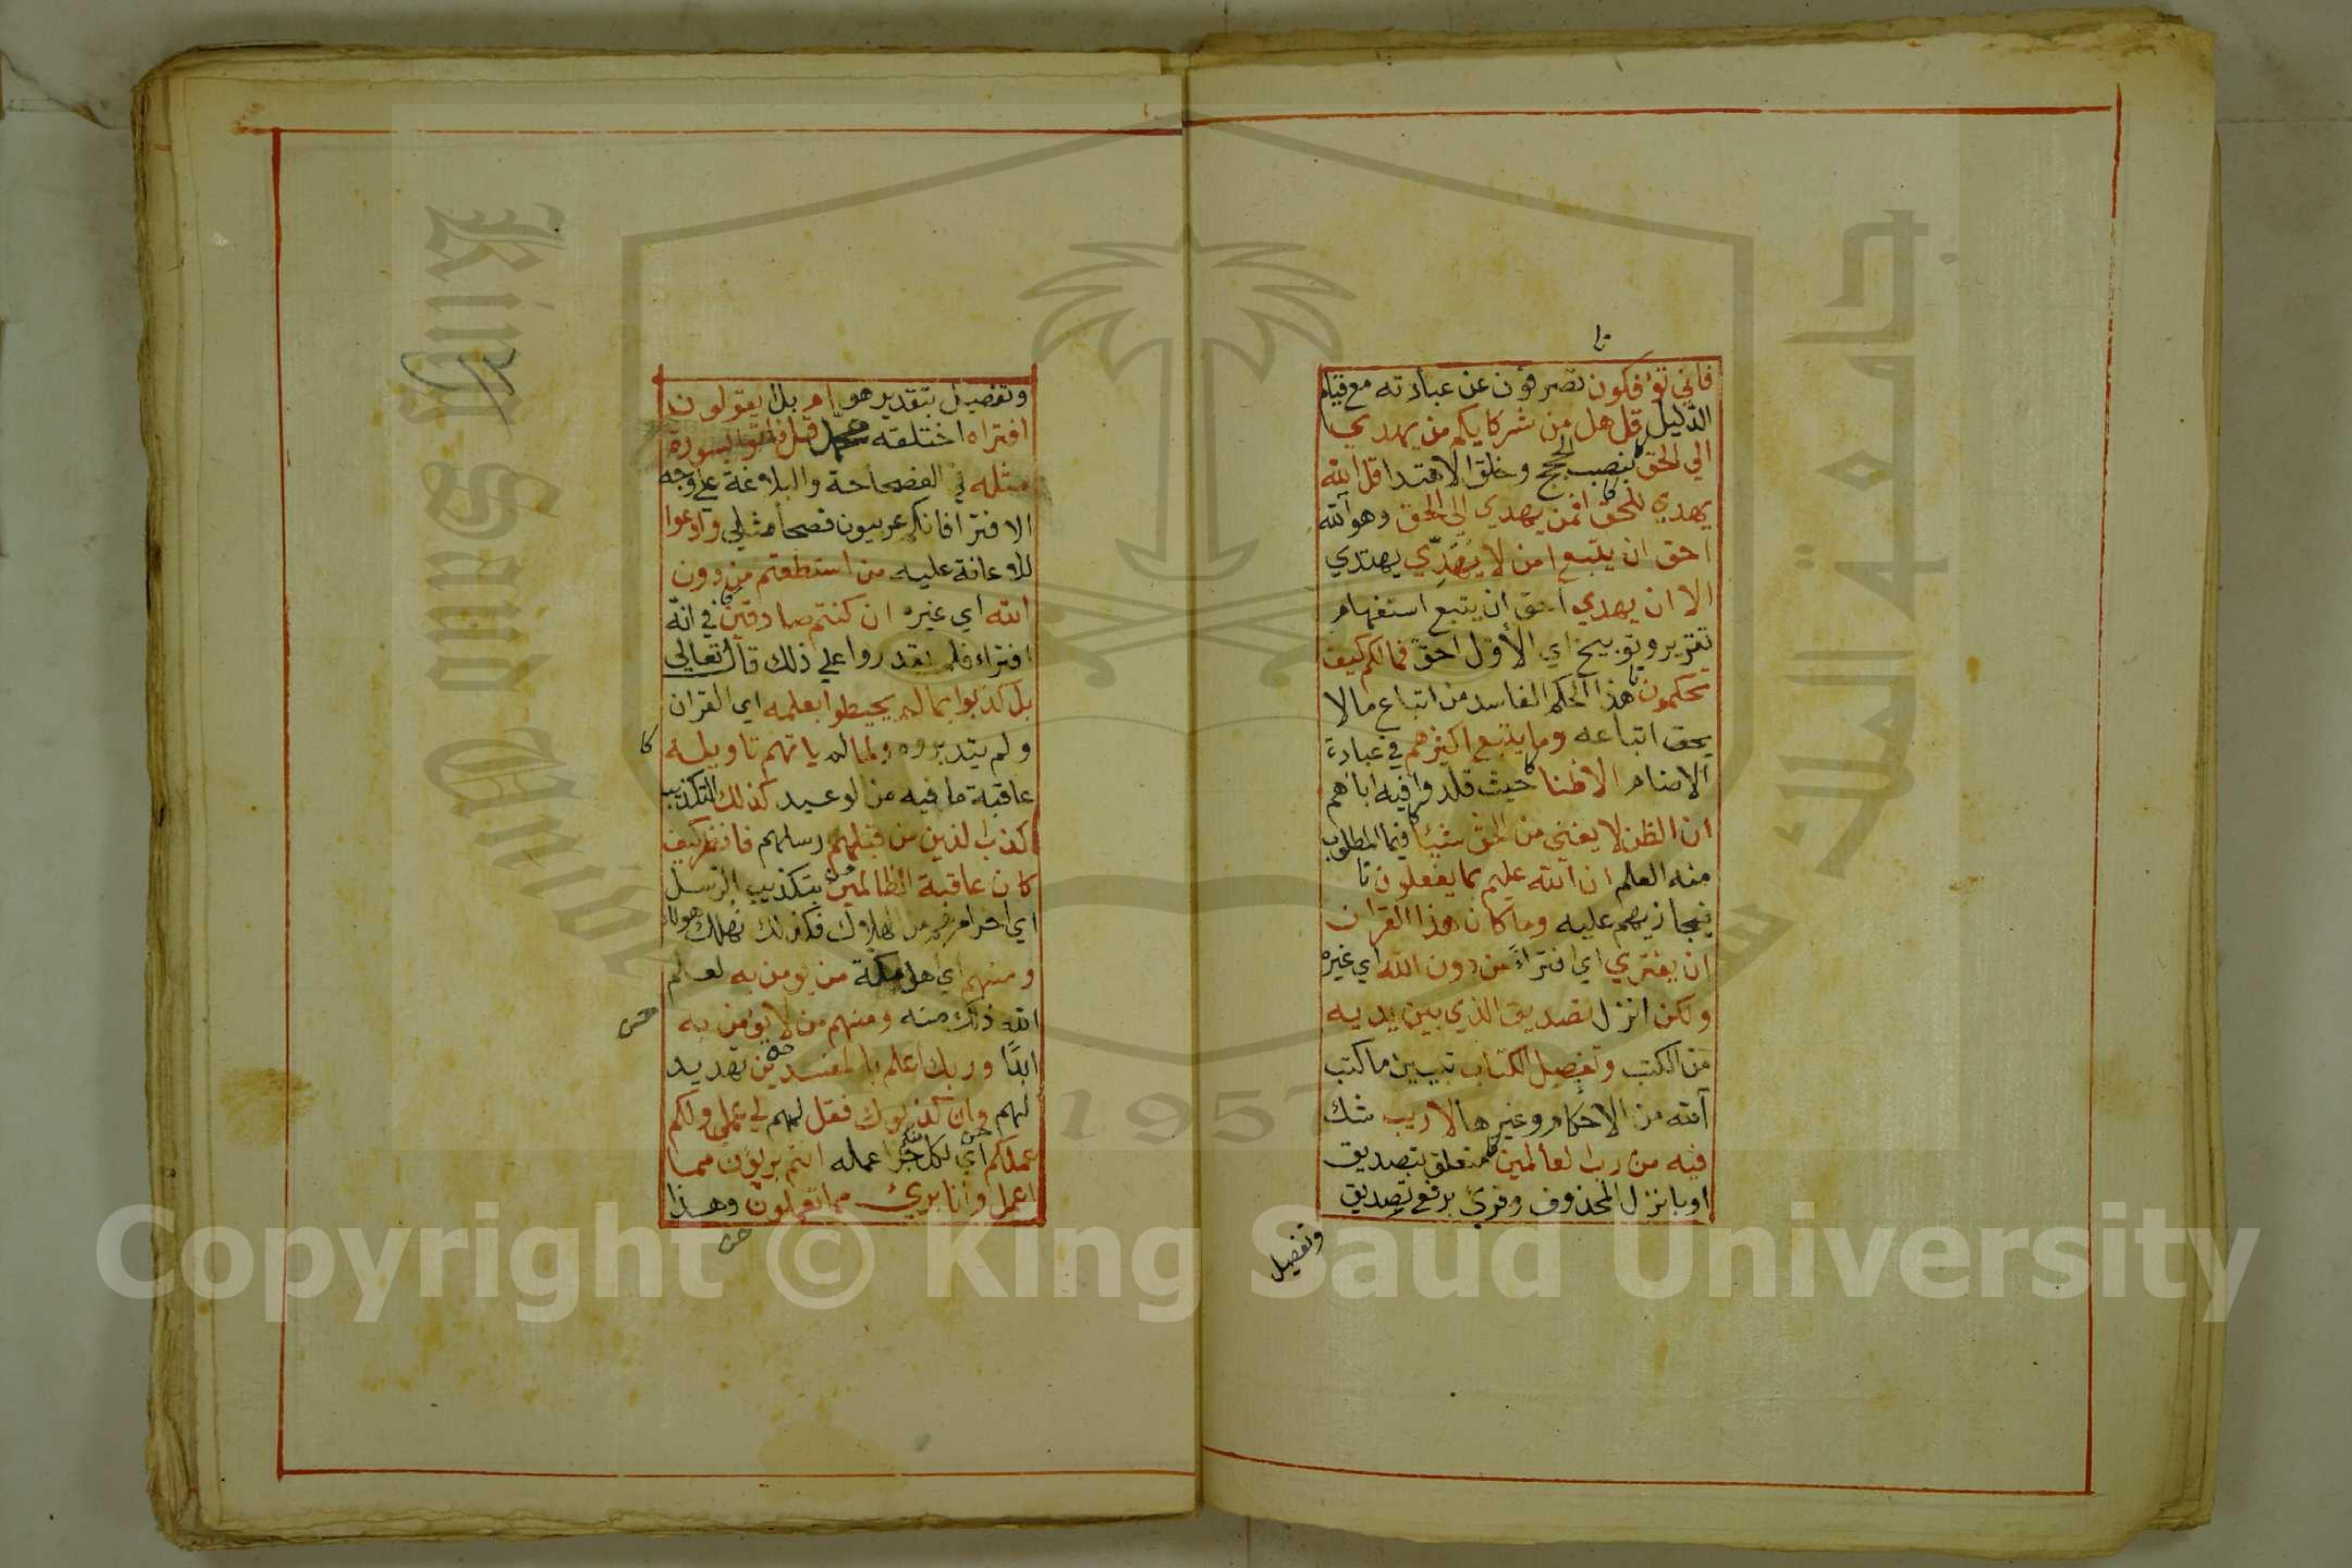 فاني تؤفكون تصرفون عن عبادته مع قيام
الدليل قل هل من شركايكم من يهدي
الي الحق بنصب الحجج وخلق الاهتدا قل الله
يهدي للحق افمن يهدي الي الحق وهو الله
احق ان يتبع امن لا يهدّي يهتدي
الا ان يهدي احق ان يتبع استفهام
تقرير وتوبيخ اي الأول احق فما لكم كيف
تحكمون هذا الحكم الفاسد من اتباع ما لا
يحق اتباعه وما يتبع اكثرهم في عبادة
الاصنام الا ظنا حيث قلدوا فيه اباهم
ان الظن لا يغني من الحق شيئا فيما المطلوب
منه العلم ان الله عليم بما يفعلون
فيجازيهم عليه وما كان هذا القران
ان يفتري اي افتراءً من دون الله اي غيره
ولكن انزل تصديق الذي بين يديه
من الكتب وتفصيل الكتاب تبيين ما كتب
الله من الاحكام وغيرها لا ريب شك
فيه من رب العالمين متعلق بتصديق
او بانزل المحذوف وقري برفع تصديق
وتفصيل
وتفصيل بتقدير هو ام بل ايقولون
افتراه اختلقه محمد قل فاتوا بسورة
مثله في الفصاحة والبلاغة علي وجه
الافترا فانكم عربيون فصحا مثلي وادعوا
للاعانة عليه من استطعتم من دون
الله اي غيره ان كنتم صادقين في انه
افتراء فلم يقدروا علي ذلك قال تعالي
بل كذبوا بما لم يحيطوا بعلمه اي القران
ولم يتدبروه ولما لم ياتهم تاويله
عاقبة ما فيه من الوعيد كذلك التكذيب
كذب الذين من قبلهم رسلهم فانظر كيف
كان عاقبة الظالمين بتكذيب الرسل
اي اخر امرهم من الهلاك فكذلك نهلك هولاء
ومنهم اي اهل مكة من يومن به لعلم
الله ذلك منه ومنهم من لا يؤمن به
ابدًا وربك اعلم بالمفسدين تهديد
لهم وان كذبوك فقل لهم لي عملي ولكم
عملكم اي لكل جزا عمله انتم بريؤن مما
اعمل وانا بريء مما تعملون وهذا
King Saud University
جامعة الملك سعود
1957
Copyright © King Saud University